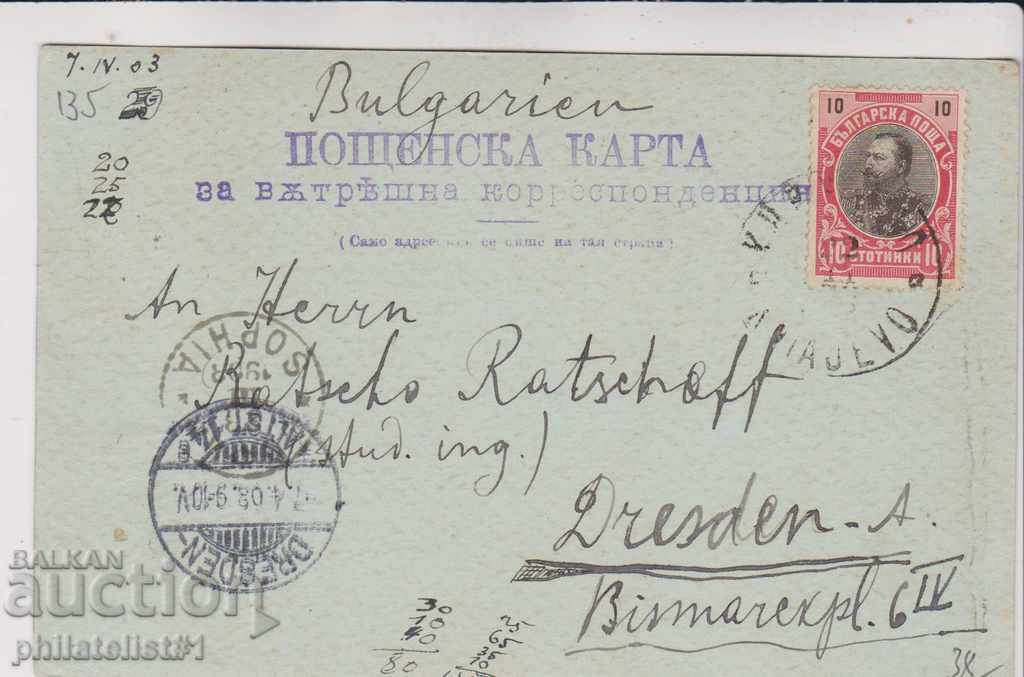 7. IV. 03
135
20
25
Bulgarien
ПОЩЕНСКА КАРТА
за вѫтрѣшна корреспонденция
(Само адресътъ се пише на тая страна)
10 10
БЪЛГАРСКА ПОЩА
10 СТОТИНКИ 10
An Herrn
SOPHIA
Ratscho Ratschoff
(stud. ing.)
ALTST. 14
7.4.03. 9-10V.
DRESDEN-
Dresden - A.
Bismarckpl. 6 IV
30
10
40
80
38-
BALKAN
auction
philatelist#1